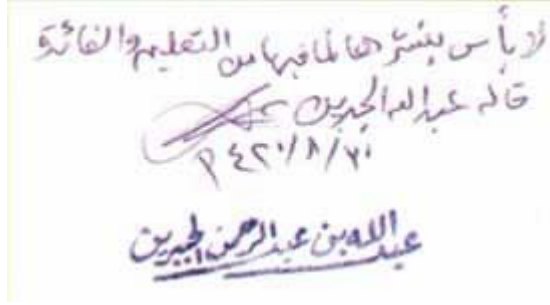 لا بأس بنشرها لما فيها من التعليم والفائدة
قاله عبد الله الجبرين
٢٠/٨/١٤٢٠
عبد الله بن عبد الرحمن الجبرين